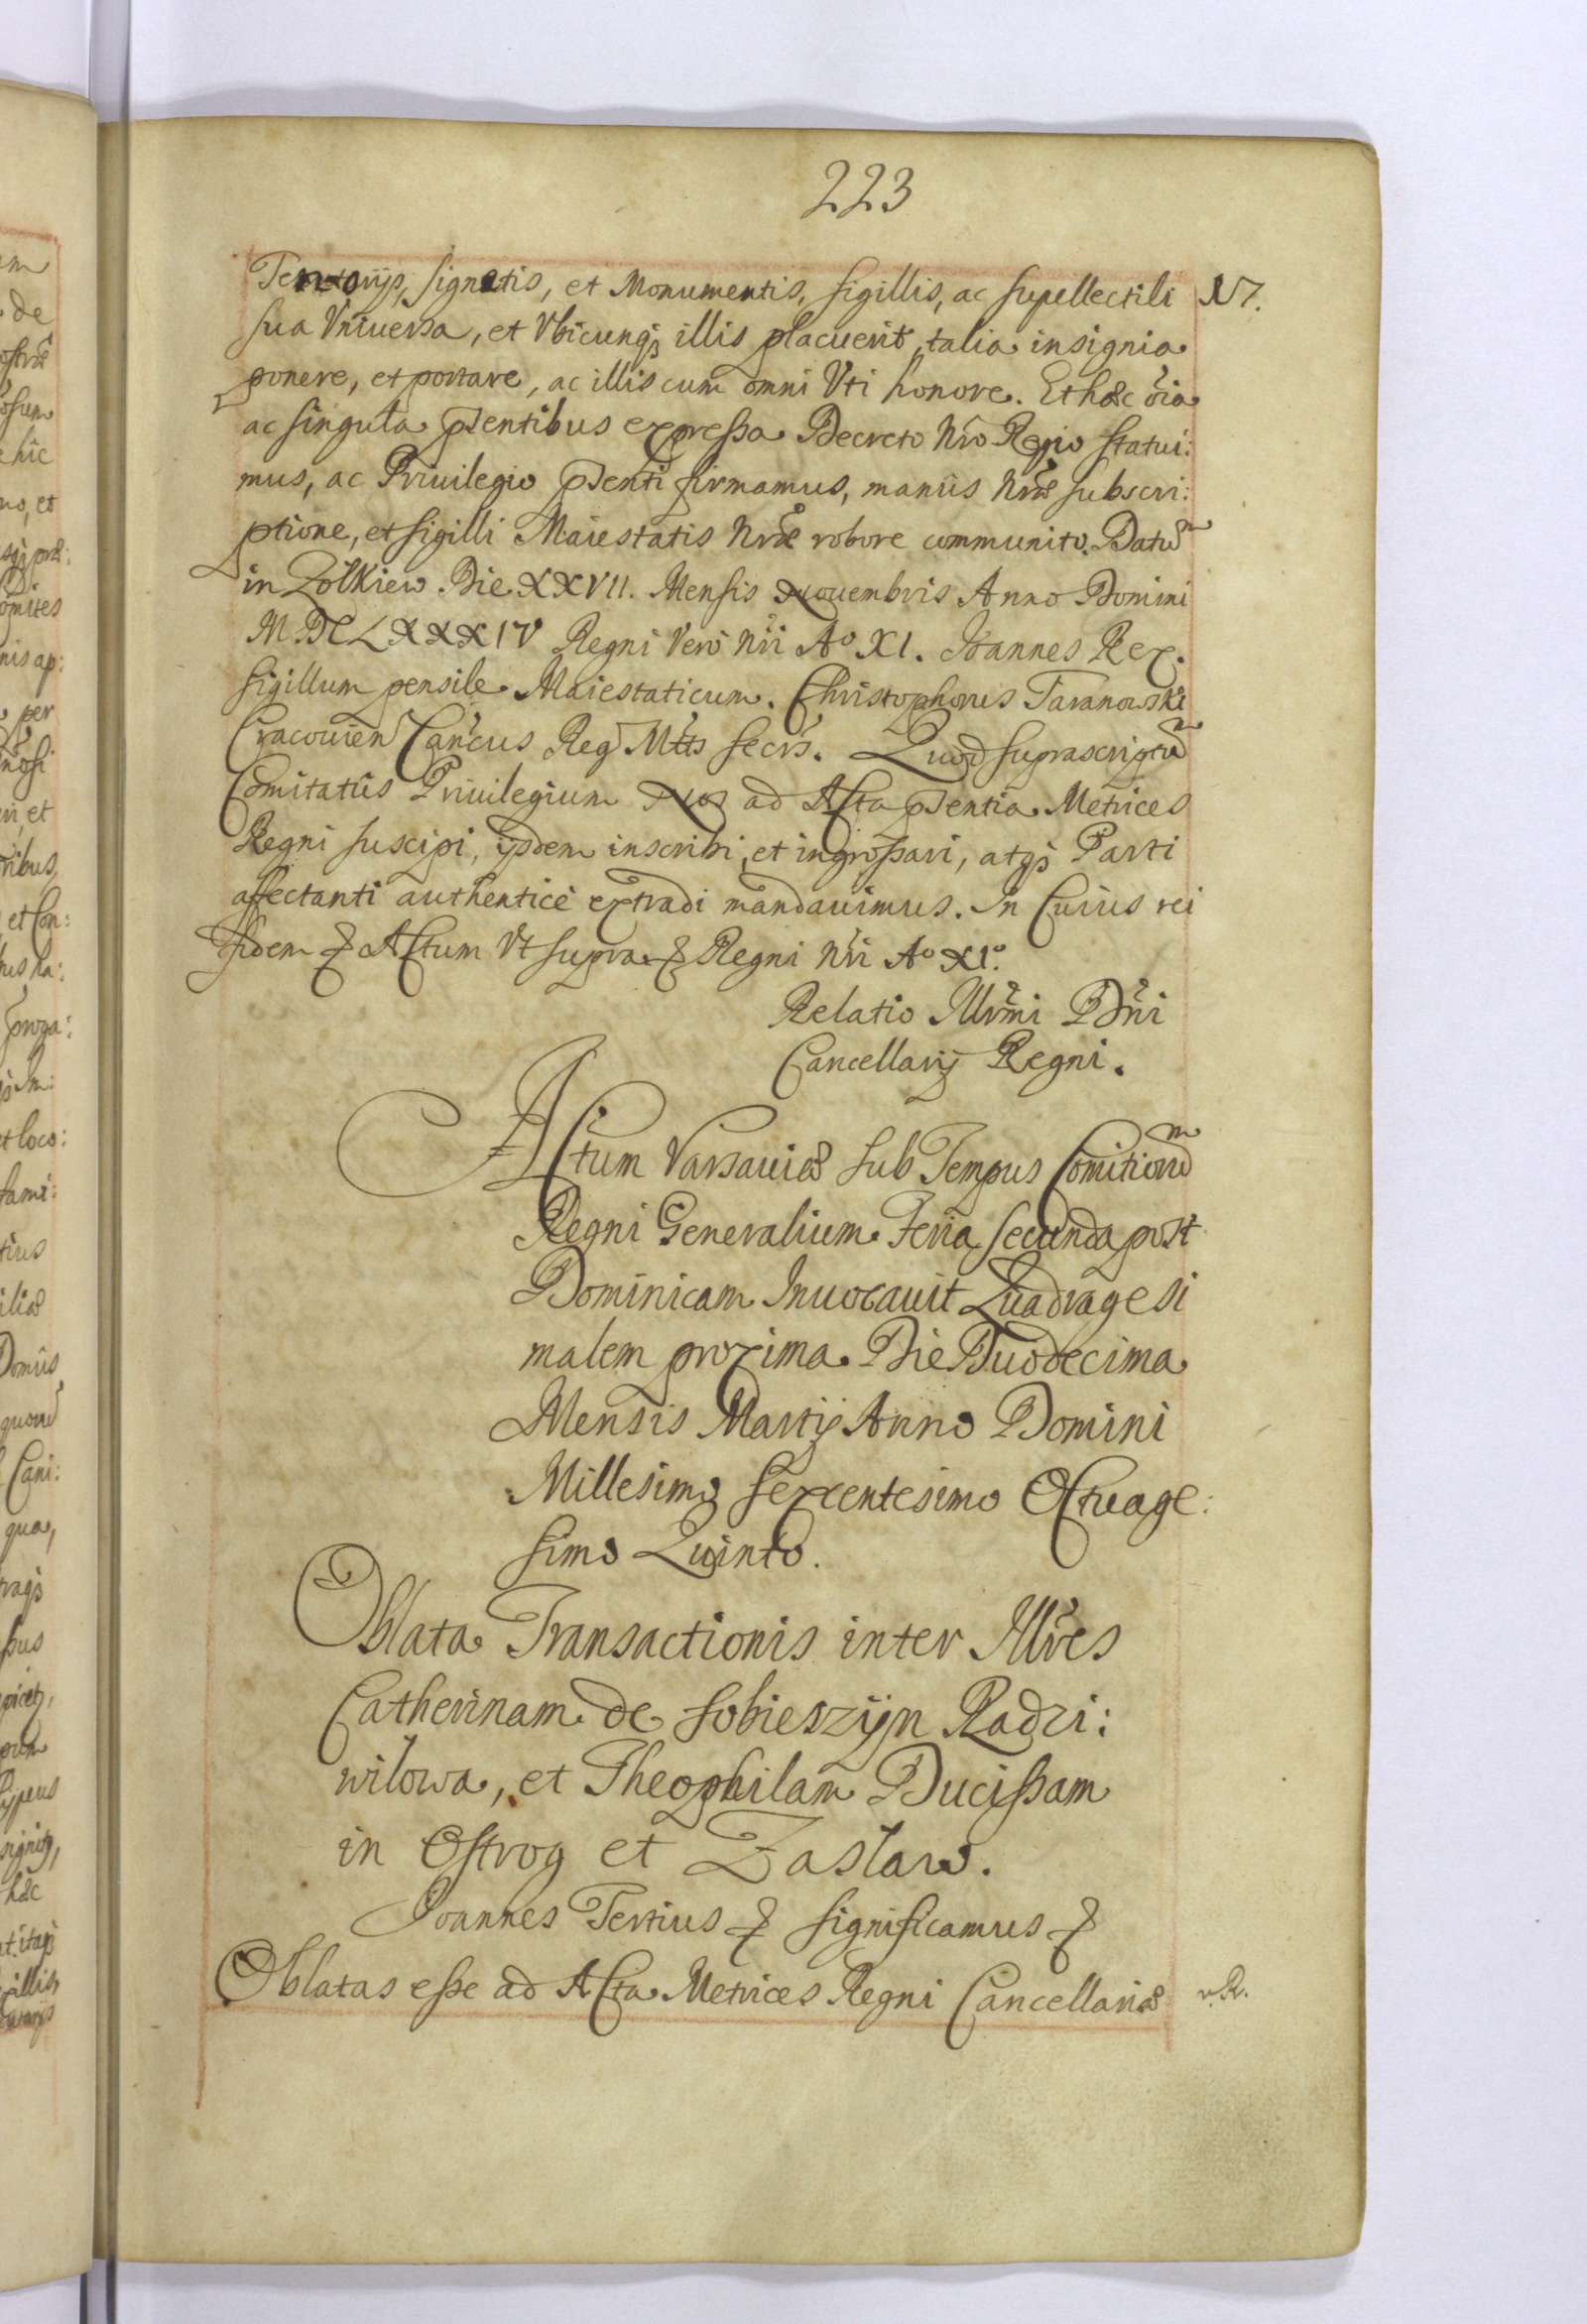 223
Tentorijs, signetis, et Monumentis, sigillis, ac supellectili N7.
sua Vniuersa, et Vbicunqꝫ illis placuerit talia insignia
ponere, et portare, ac illis cum omni Vti honore. Et hæc o͠ia
ac singula p͠sentibus expressa Decreto Nro͠ Regio statui:
mus, ac Priuilegio p͠senti firmamus, manûs Nræ͠ subscri:
ptione, et sigilli Maiestatis Nræ͠ robore communito. Datu͠m
in Zolkiew Die XXVII. Mensis Nouembris Anno Domini
M.DCLXXXIV Regni Vero Nri͠ Aº XI. Ioannes Rex.
Sigillum pensile Maiestaticum. Christophorus Taranowski
Cracouien͠ Can͠cus Reg͠ Mttis͠ Secrs͠. Quod suprascriptu͠m
Comitatûs Priuilegium Nos ad Acta p͠sentia Metrices
Regni suscipi, ijsdem inscribi, et ingrossari, atqꝫ Parti
affectanti authenticè extradi mandauimus. In Cuius rei
fidem & Actum Vt supra & Regni Nri͠ Aº XIº.
Relatio Illrmi͠ Dni͠
Cancellarij Regni.
Actum Varsauiæ sub Tempus Comitioru͠m
Regni Generalium Feria secunda post
Dominicam Inuocauit Quadragesi
malem proxima Die Duodecima
Mensis Martij Anno Domini
Millesimo sexcentesimo Octuage:
simo Quinto.
Oblata Transactionis inter Illres͠
Catherinam de Sobieszijn Radzi:
wilowa, et Theophilam Ducissam
in Ostrog et Zaslaw.
Ioannes Tertius & significamus &
Oblatas esse ad Acta Metrices Regni Cancellariæ v.R.